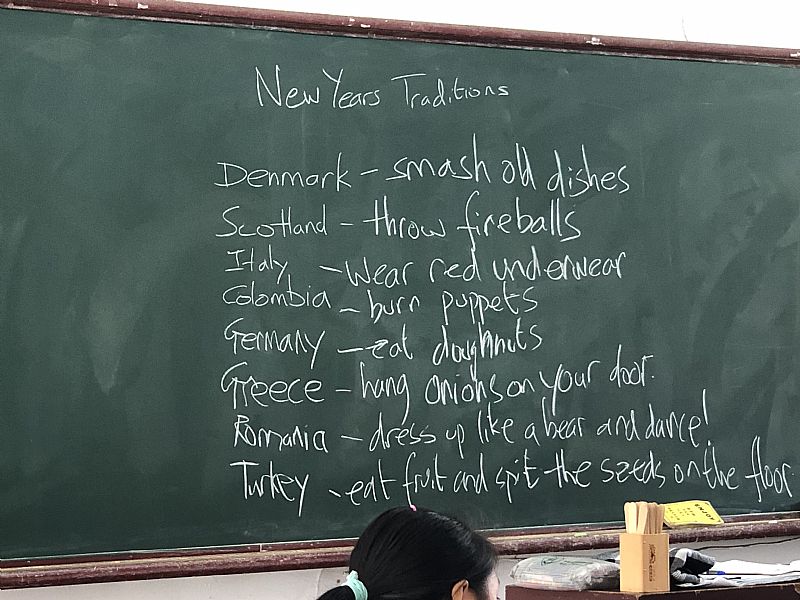 New Years Traditions
Denmark - smash old dishes
Scotland - throw fireballs
Italy - wear red underwear
Colombia - burn puppets
Germany - eat doughnuts
Greece - hang onions on your door.
Romania - dress up like a bear and dance!
Turkey - eat fruit and spit the seeds on the floor